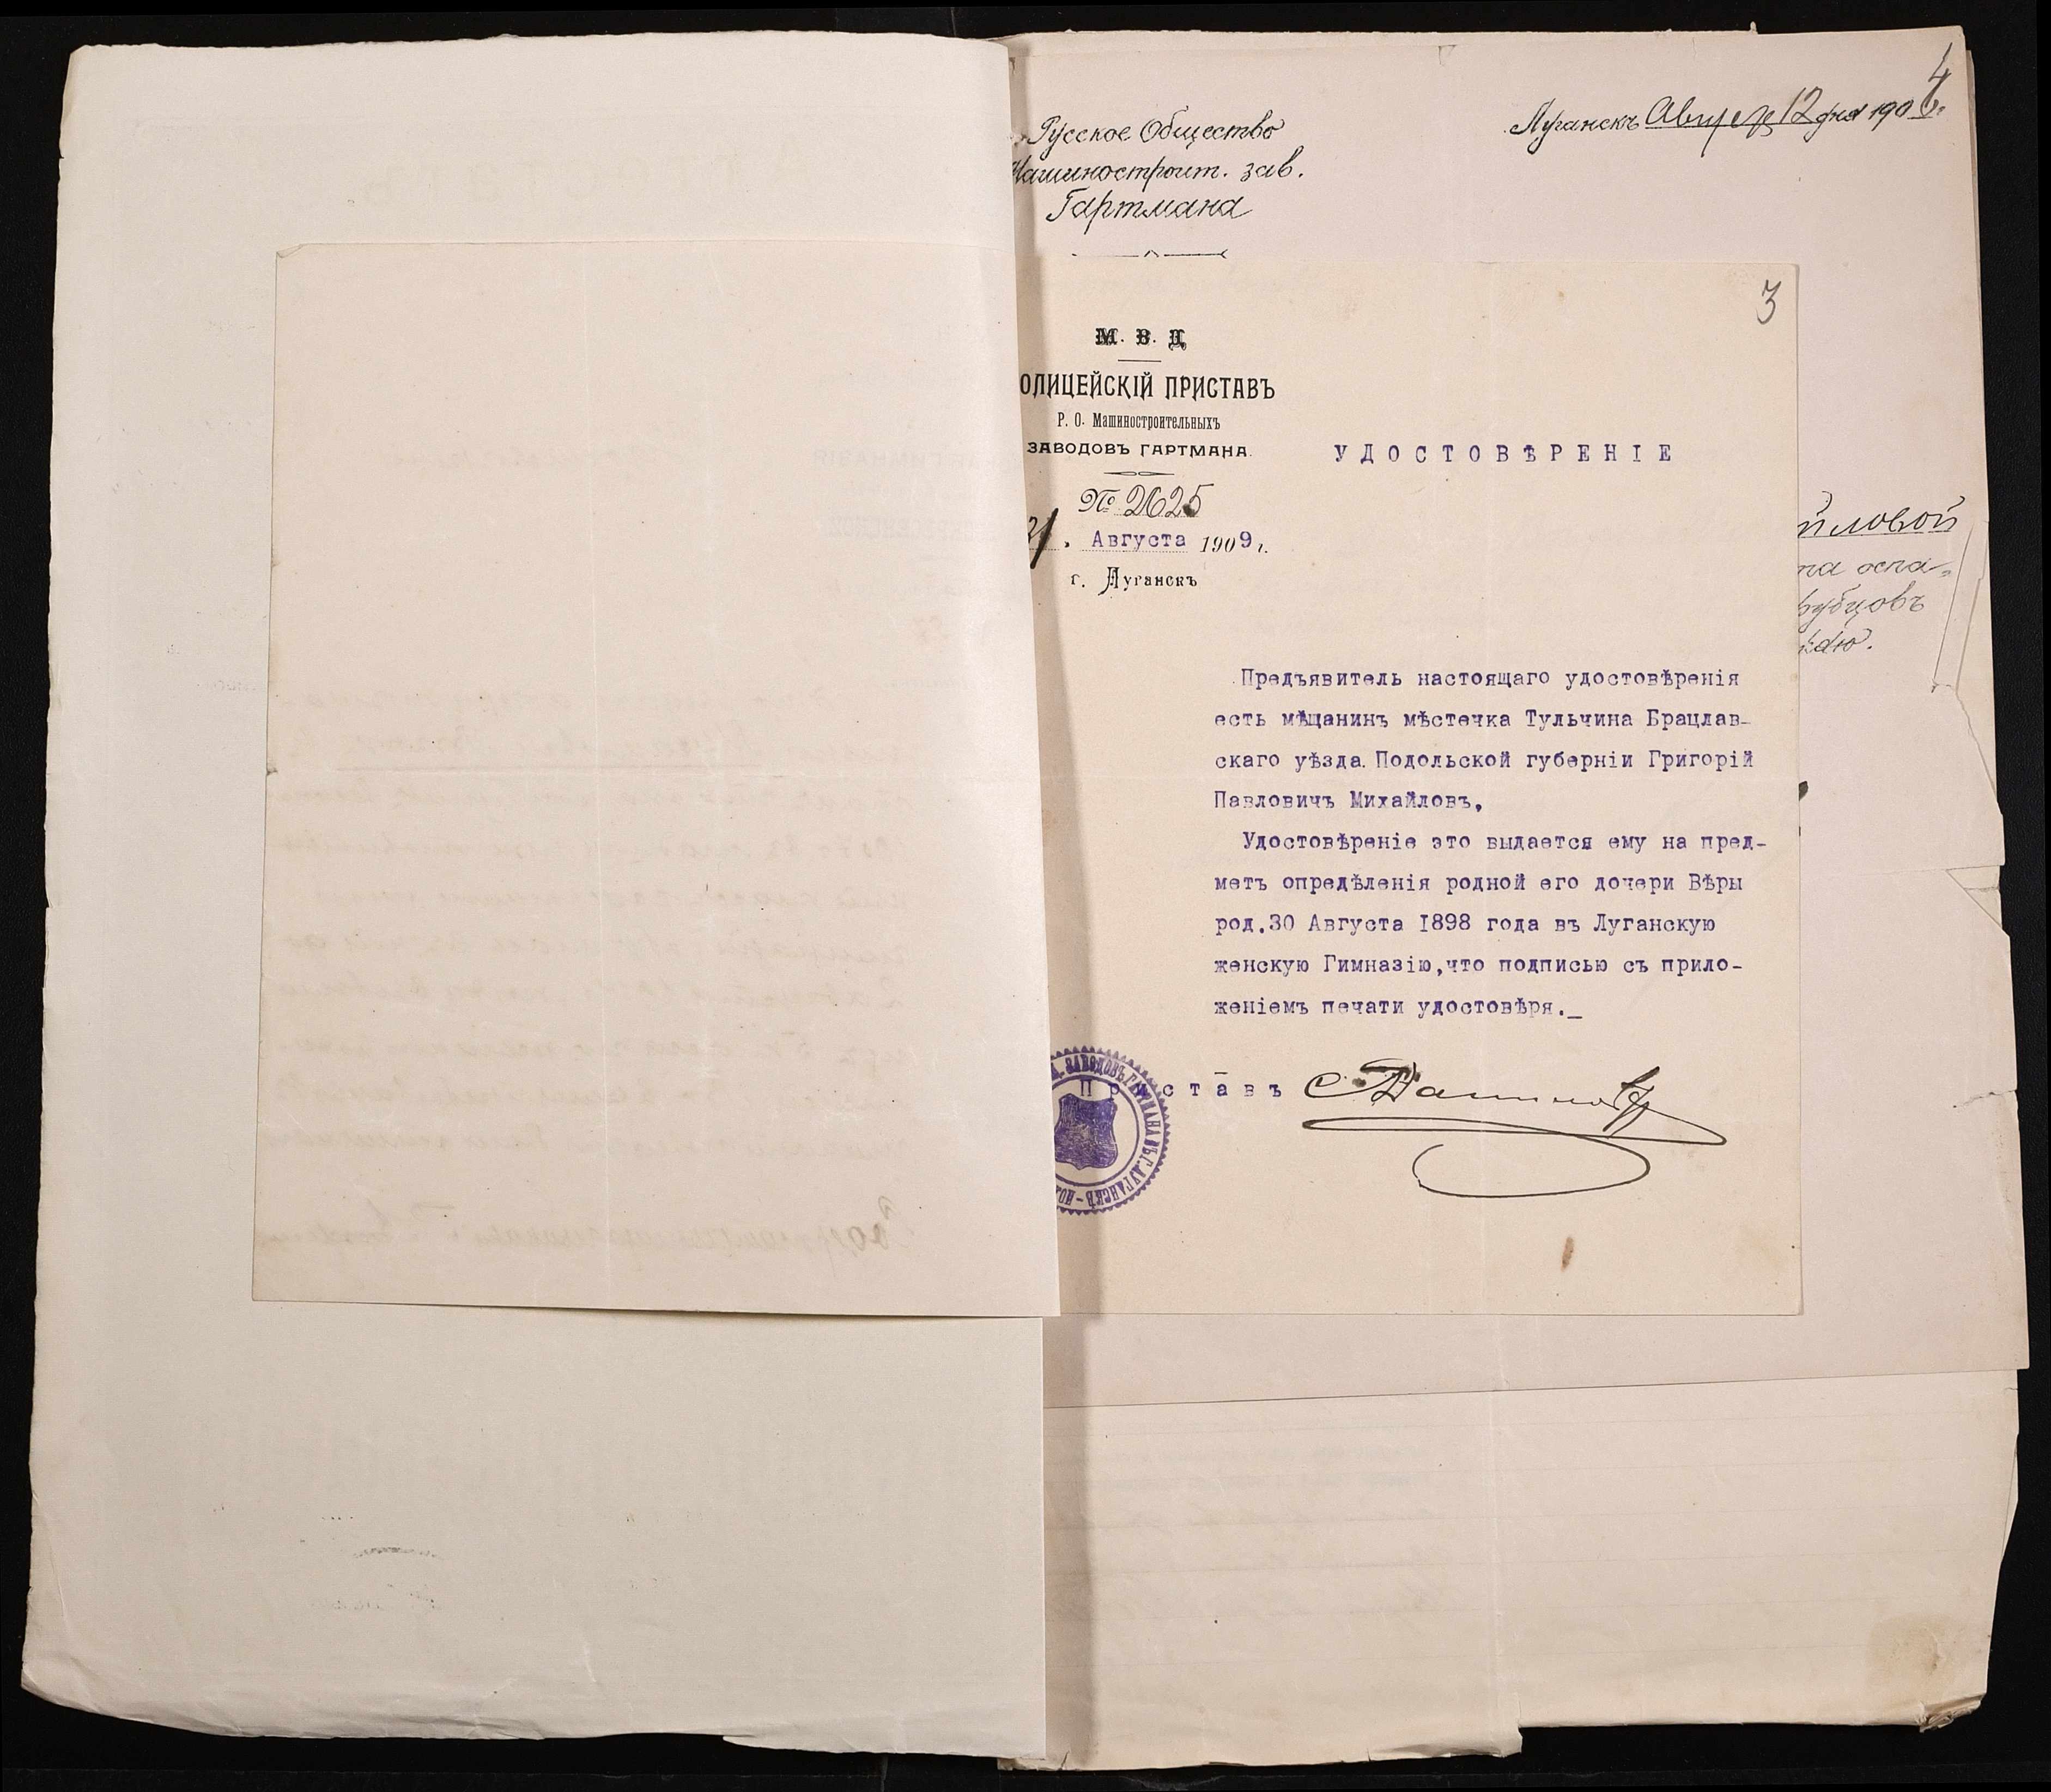 4
Русское Общество
Машиностроит. зав.
Гартмана
Луганскъ Август 12 дня 190
3
М. В. Д
ОЛИЦЕЙСКІЙ ПРИСТАВЪ
Р. О. Машиностроительныхъ
ЗАВОДОВЪ ГАРТМАНА.
№ 2625
21, Августа 1909 г.
г. Луганскъ
УДОСТОВѢРЕНІЕ
йловой
та оспа-
рубцовъ
Предъявитель настоящаго удостовѣренія
есть мѣщанинъ мѣстечка Тульчина Брацлав-
скаго уѣзда Подольской губерніи Григорій
Павловичъ Михайловъ,
Удостовѣреніе это выдается ему на пред-
метъ опредѣленія родной его дочери Вѣры
род.30 Августа 1898 года въ Луганскую
женскую Гимназію,что подписью съ прило-
женіемъ печати удостовѣря._
Приставъ
ЗАВОДОВЪ ГАРТМАНА ВЪ Г. ЛУГАНСКѢ